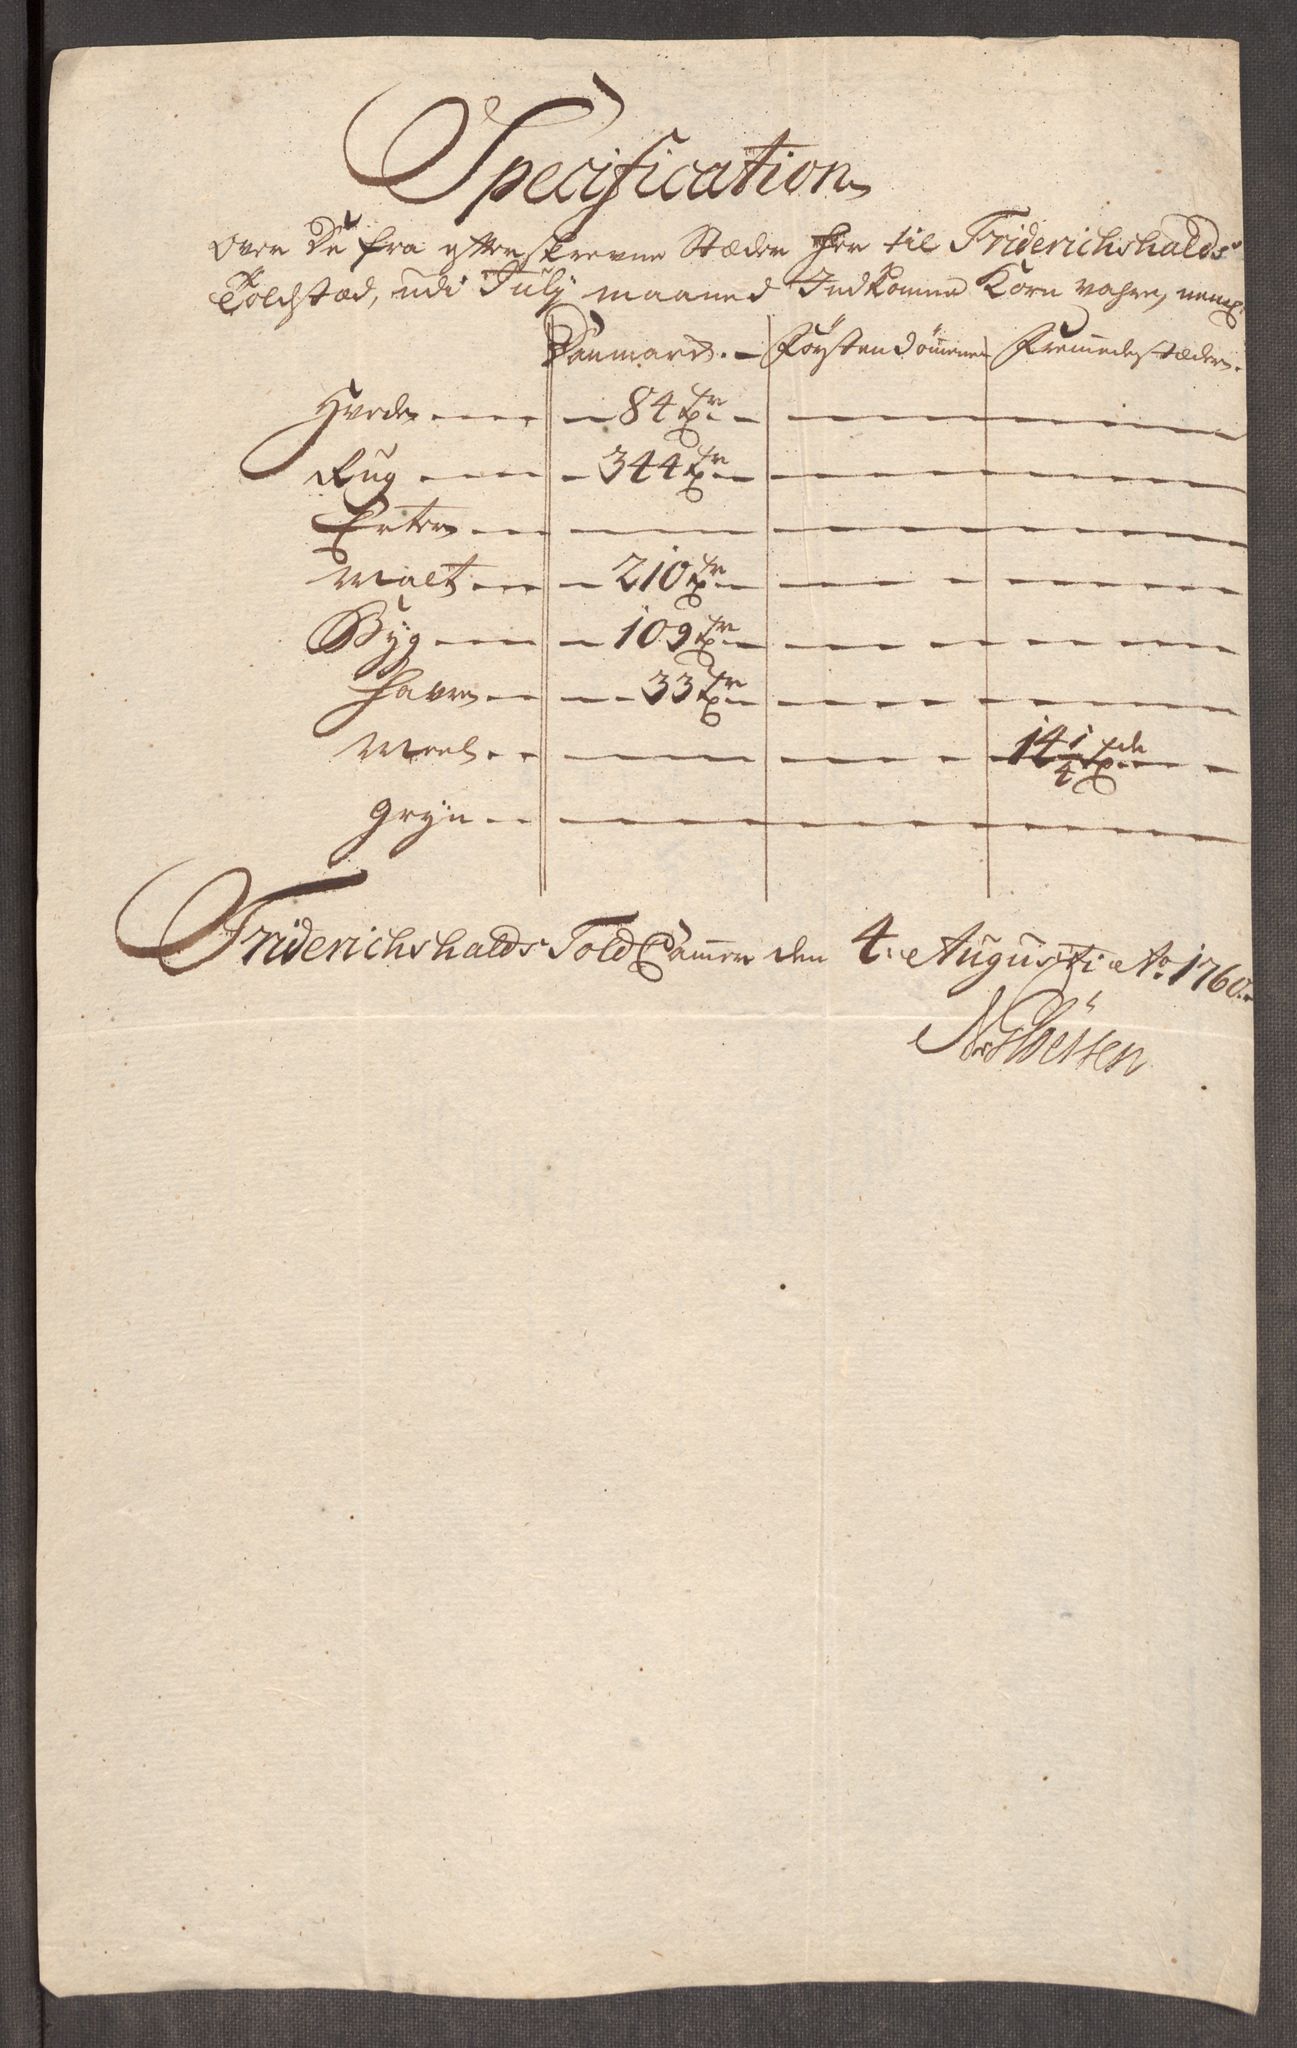 Specification
Over De fra efterskrevne Stæder her til Friderichshalds
Toldstæd, udi July maaned Indkomne Korn vahre, nempl.
Danmark. Förstendömmene Fremmede stæder.
Hvede 84 Tr
Rug 344 Tr
Erter
Malt 210 Tr
Byg 109 Tr
Havre 33 Tr
Meel 14 1/4
Gryn
Friderichshalds Told Cammer den 4. Augusti Ao. 1760.